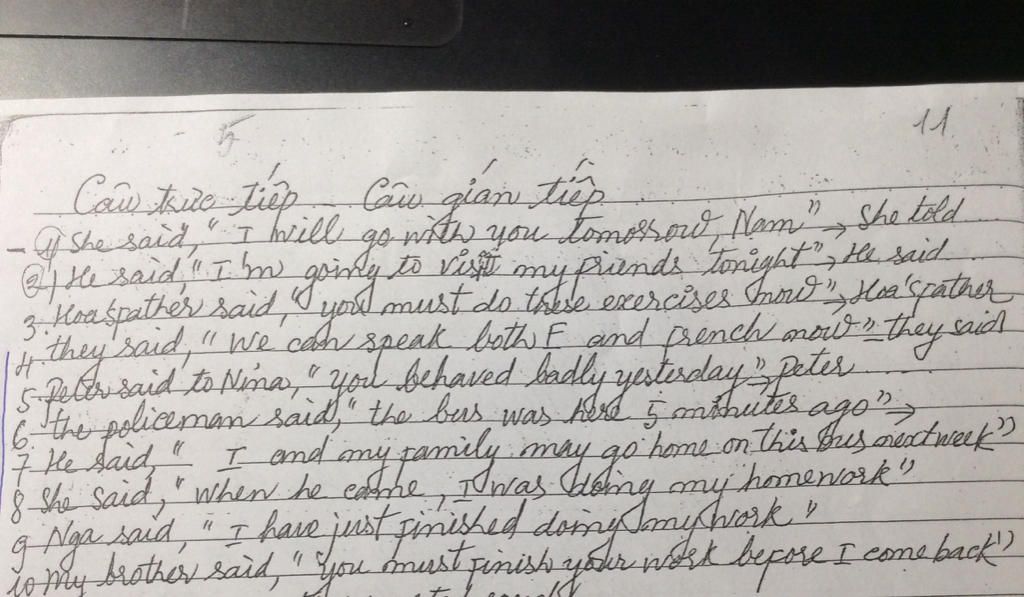 5 11
Câu trực tiếp - Câu gián tiếp
- 1) She said, "I will go with you tomorrow, Nam" → She told
2) He said, "I'm going to visit my friends tonight" → He said
3. Hoa's father said, "you must do these exercises now" → Hoa's father
4. they said, "We can speak both E and french now" → they said
5. Peter said to Nina, "you behaved badly yesterday" → Peter
6 the policeman said, "the bus was here 5 minutes ago" →
7 He said, "I and my family may go home on this bus next week"
8 She said, "when he came, I was doing my homework"
9 Nga said, "I have just finished doing my work"
10 My brother said, "you must finish your work before I come back"